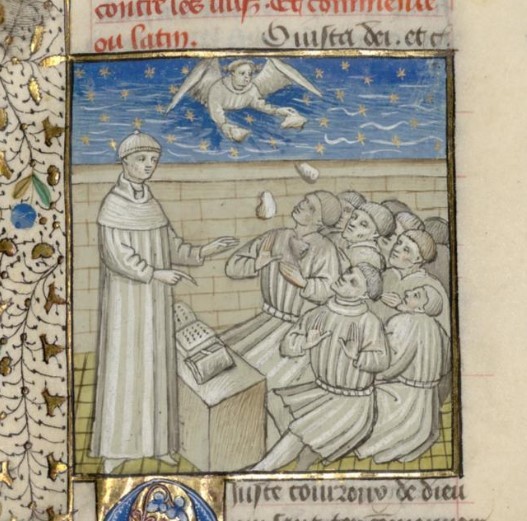 contre les iuifz. Et commence
ou latin. O iusta dei. et c.
O iuste courroux de dieu